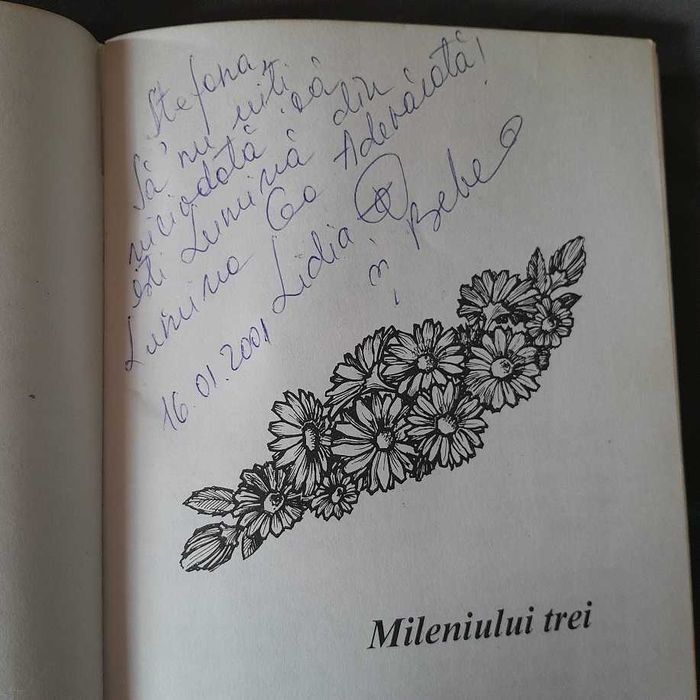 Ștefana,
Să nu uiți
niciodată că
ești Lumină din
Lumina Cea Adevărată!
Lidia
și Bebe
16.01.2001
Mileniului trei